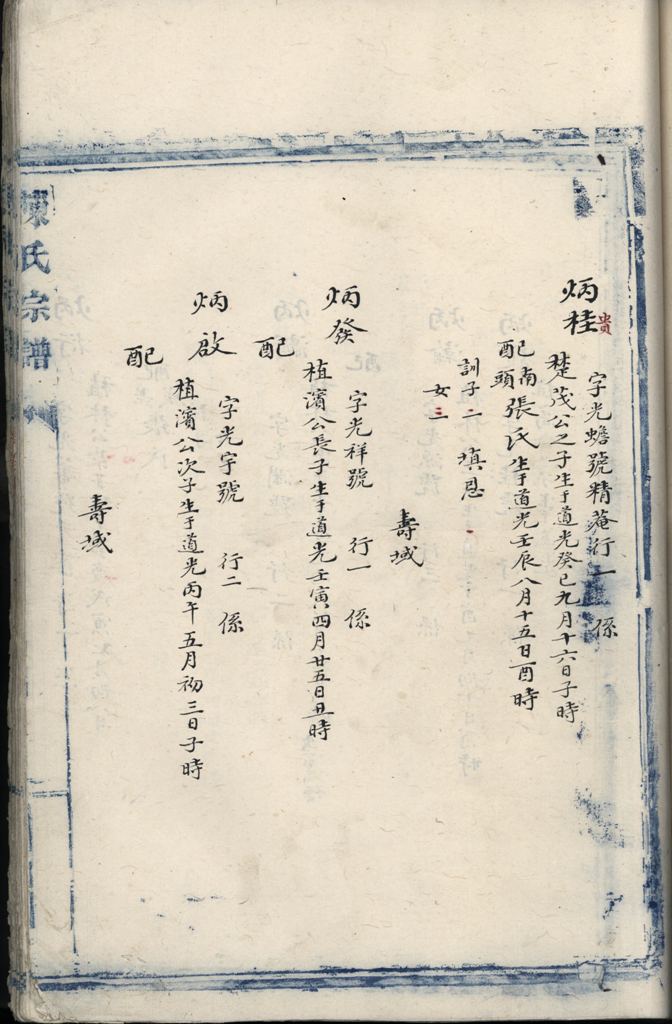 炳桂 貴
字光蟾號精菴行一 係
楚茂公之子生于道光癸巳九月十六日子時
配南頭張氏生于道光壬辰八月十五日酉時
訓子二 填恩
女三
壽域
炳發
字光祥號 行一 係
植濱公長子生于道光壬寅四月廿五日丑時
配
炳啟
字光宇號 行二 係
植濱公次子生于道光丙午五月初三日子時
配
壽域
陳氏宗譜